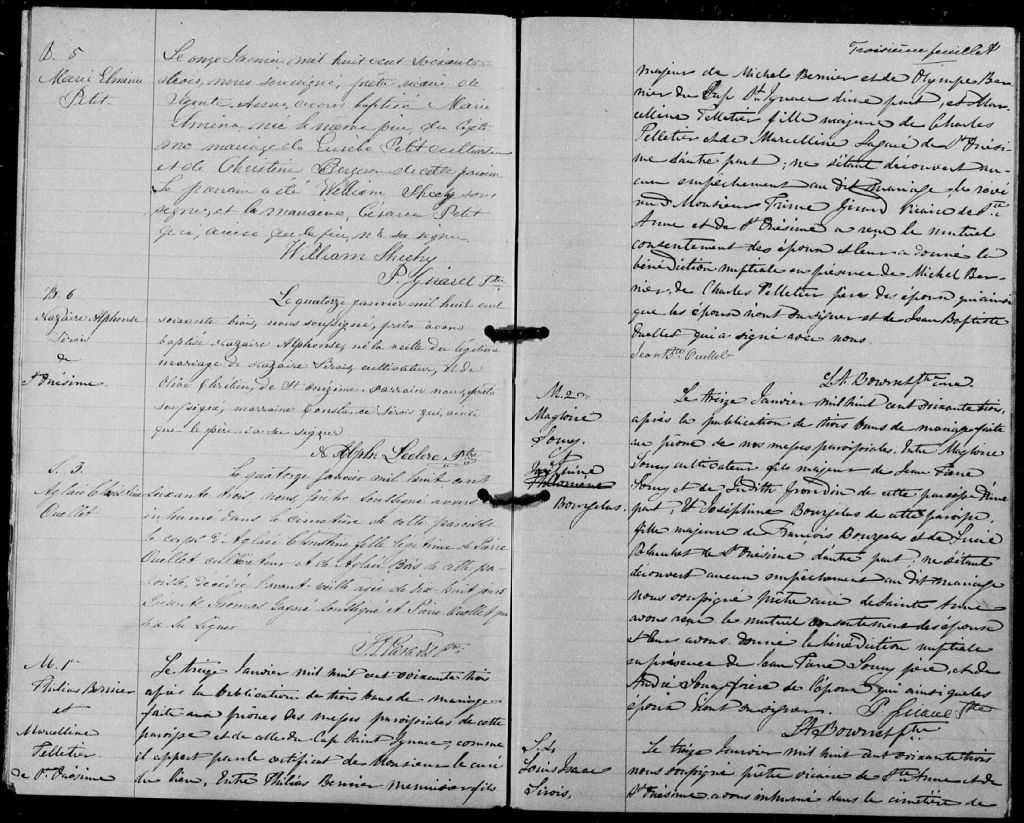 B. 5
Marie Elmina
Petit
Le onze Janvier mil huit cent soixante
trois, nous soussigné, prêtre vicaire de
Sainte Anne, avons baptisé Marie
Elmina, née le même jour, du légiti
me mariage de Eusèbe Petit cultivateur
et de Christine Bergeron de cette paroisse
Le parrain a été William Sheehy sous
signé, et la marraine, Césarie Petit
qui, ainsi que le père, n'a su signer.
William Sheehy
P. Girard Ptre
B. 6
Nazaire Alphonse
Sirois
de
St Onésime
Le quatorze janvier mil huit cent
soixante trois, nous soussigné, prêtre avons
baptisé Nazaire Alphonse, né la veille du légitime
mariage de Nazaire Sirois, cultivateur, et de
Chrétien, de St Onézime. Parrain nous, prêtre
soussigné, marraine Constance Sirois qui, ainsi
que le père n'a su signer
N Alph. Leclerc, Ptre
S. 3.
Aglaé Christine
Ouellet
Le quatorze janvier mil huit cent
soixante trois nous prêtre soussigné avons
inhumé dans le cimetière de cette paroisse
le corps d'Aglaé Christine fille légitime de Pierre
Ouellet cultivateur et de Aglaé Bois de cette pa-
roisse décédée l'avant-veille agée de dix huit jours
Présents Thomas Gagné soussigné et Pierre Ouellet qui
n'a su signer
Paradis Ptre
M. 1r
Philias Bernier
et
Marcelline
Pelletier
de St. Onésime
Le treize Janvier mil huit cent soixante trois
après la publication de trois bans de mariage
faite aux prônes des messes paroissiales de cette
paroisse et de celle du Cap Saint Ignace, comme
il appert par le certificat de Monsieur le curé
du lieu, Entre Philias Bernier Menuisier fils
Troisième feuillet
majeur de Michel Bernier et de Olympe Ber
nier du Cap St. Ignace d'une part, et Mar
celline Pelletier fille majeure de Charles
Pelletier et de Marcelline Lagacé de St. Onési
me d'autre part; ne s'étant découvert au-
cun empêchement au dit mariage le révé
rend Monsieur Prime Girard Vicaire de Ste
Anne et de St. Onésime a reçu le mutuel
consentement des époux et leur a donné la
bénédiction nuptiale en présence de Michel Ber-
nier, de Charles Pelletier pères des époux qui ainsi
que les époux n'ont su signer et de Jean Baptiste
Ouellet qui a signé avec nous.
Jean Bte Ouellet
M. 2.
Magloire
Soucy
et
Joséphine
Philomène
Bourgelas.
Le treize Janvier mil huit cent soixante trois,
après la publication de trois bans de mariage faite
au prône de nos messes paroissiales. Entre Magloire
Soucy cultivateur fils majeur de Jean Pierre
Soucy et de Judith Grondin de cette paroisse d'une
part; Et Joséphine Bourgelas de cette paroisse,
fille majeure de François Bourgelas et de Lucie
de St. Onésime d'autre part; ne s'étant
découvert aucun empêchement au dit mariage
nous soussigné prêtre curé de Sainte Anne
avons reçu le mutuel consentement des époux
et leur avons donné la bénédiction nuptiale
en présence de Jean Pierre Soucy père, et de
André Soucy frère de l'époux qui ainsi que les
époux n'ont su signer.
P. Girard Ptre
S. 4
Louis Isaac
Sirois.
Le treize Janvier mil huit cent soixante trois
nous soussigné prêtre vicaire de Ste Anne et de
St. Onésime avons inhumé dans le cimetière de